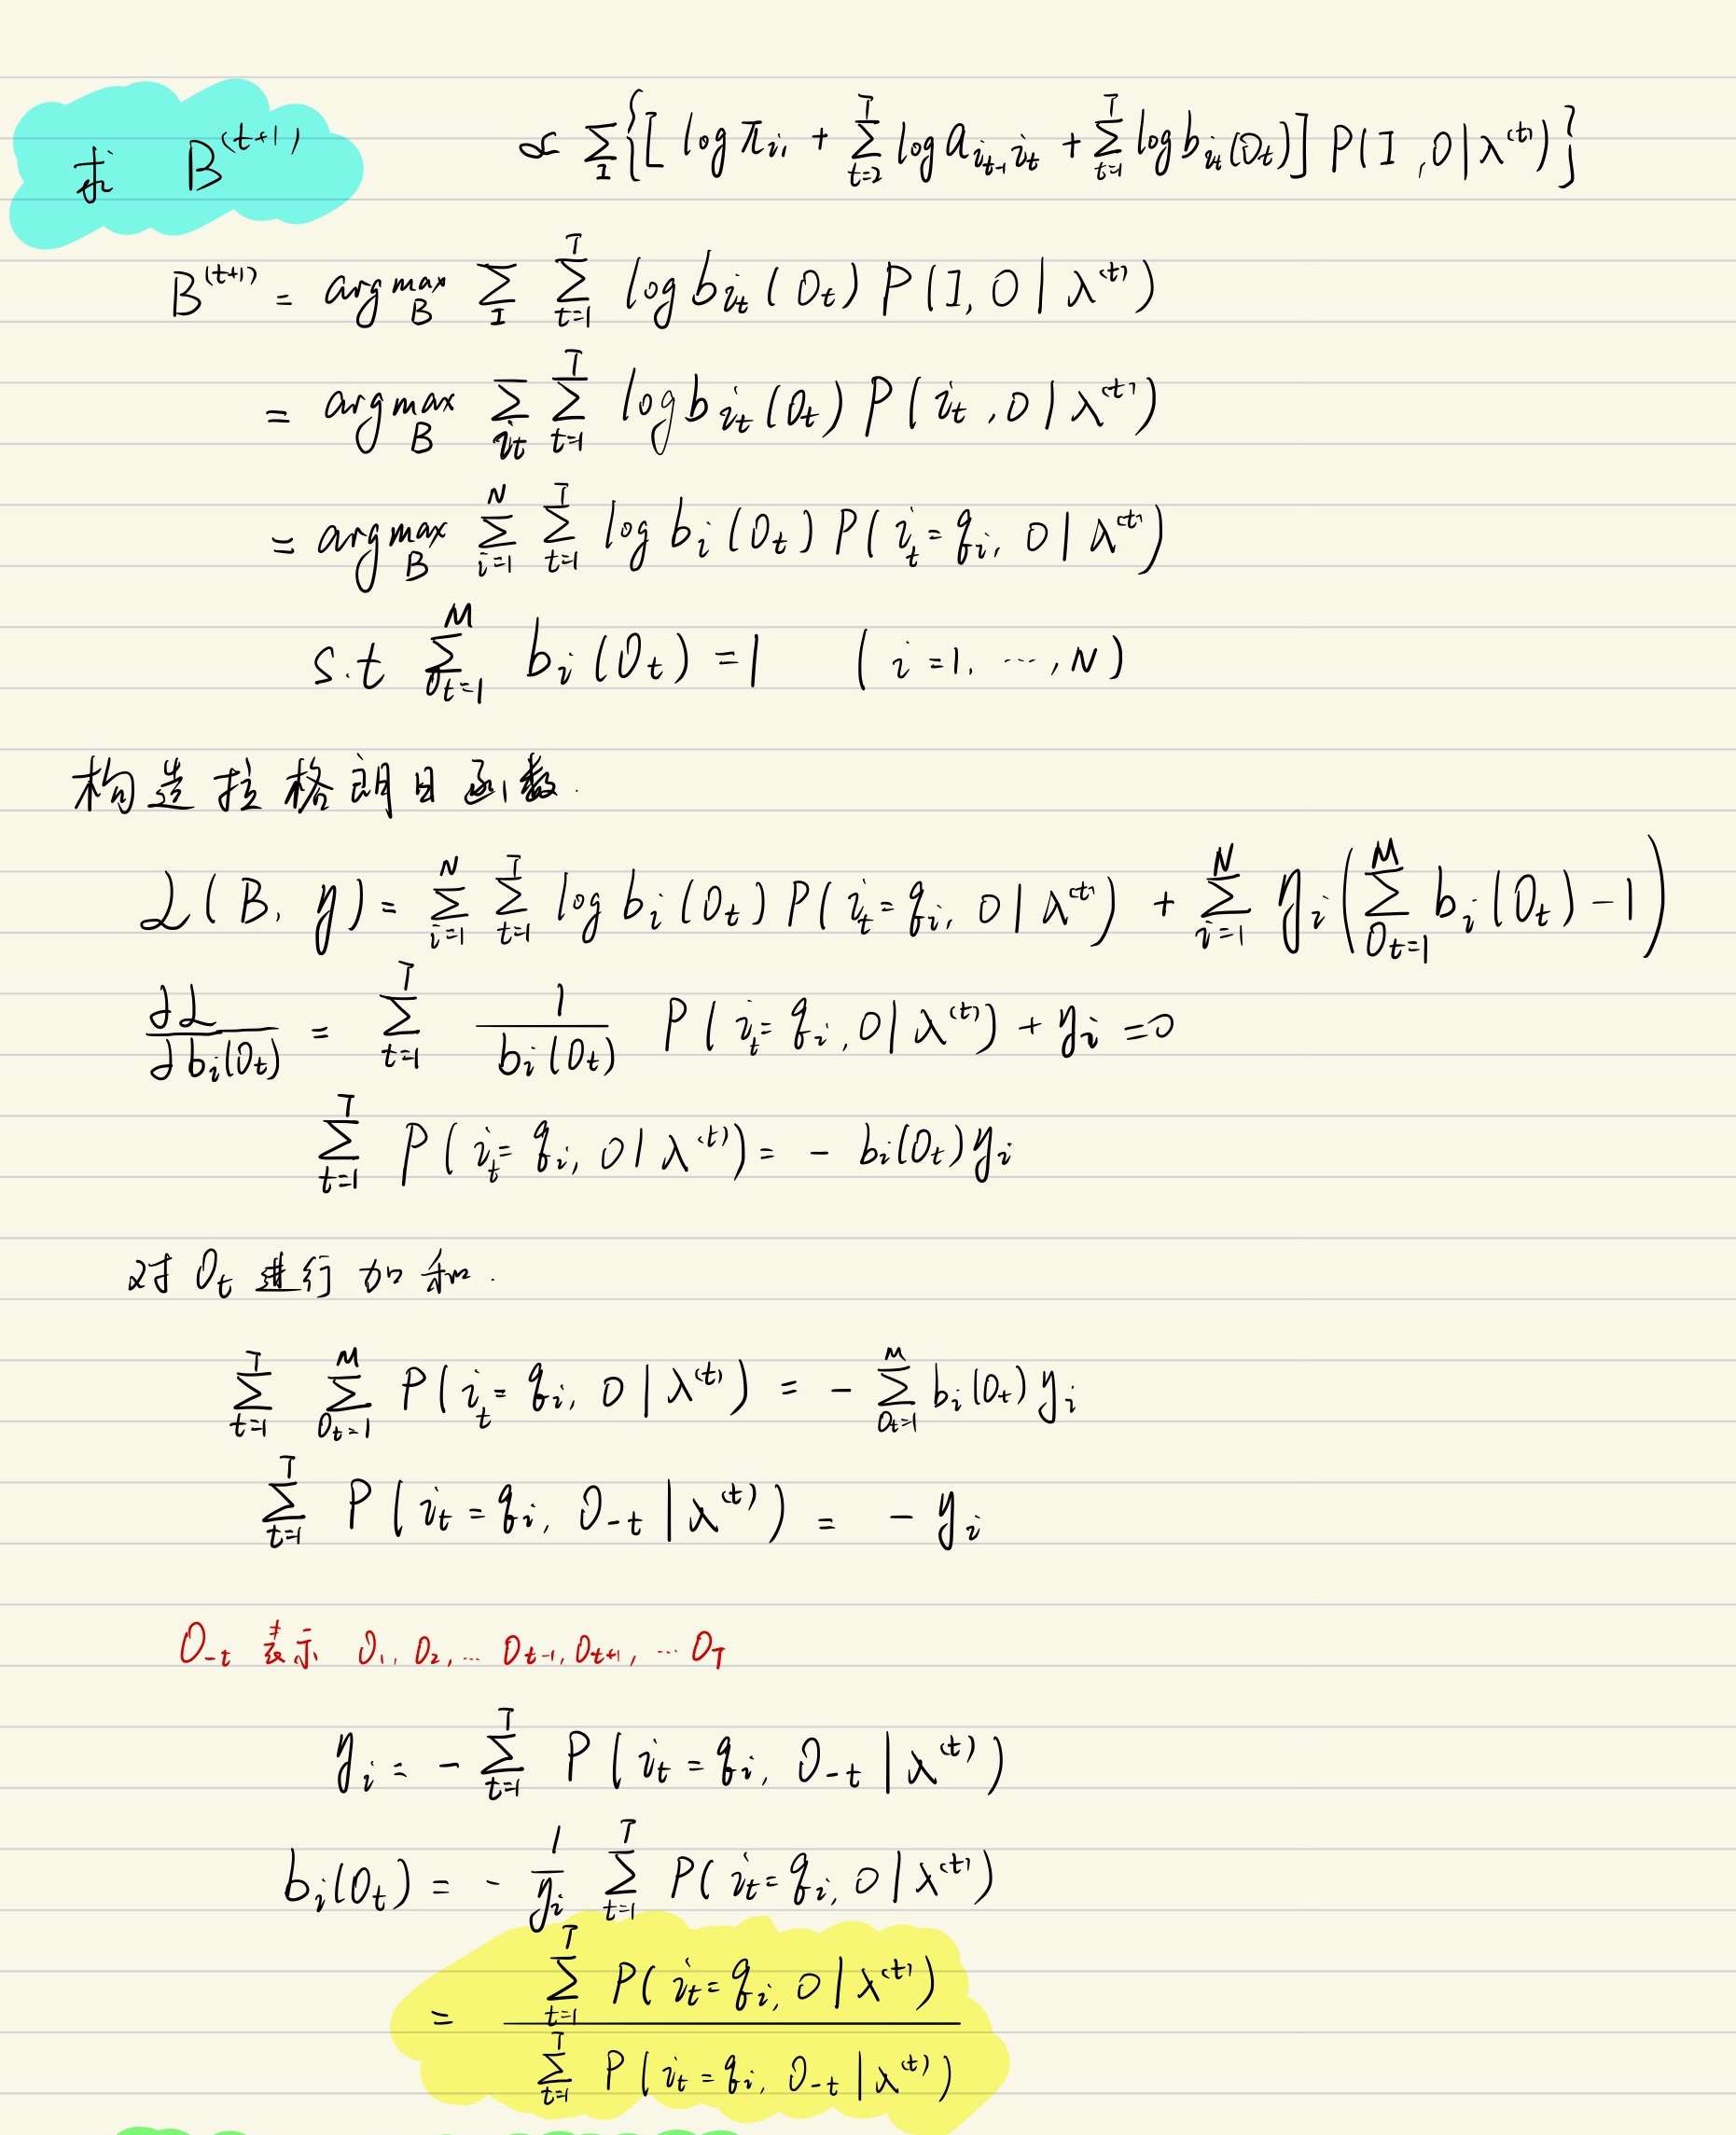 求 B^(t+1) ∝ Σ_I {[log π_{i_1} + Σ_{t=2}^T log a_{i_{t-1} i_t} + Σ_{t=1}^T log b_{i_t}(O_t)] P(I, O | λ^(t))}
B^(t+1) = argmax_B Σ_I Σ_{t=1}^T log b_{i_t}(O_t) P(I, O | λ^(t))
= argmax_B Σ_{i_t} Σ_{t=1}^T log b_{i_t}(O_t) P(i_t, O | λ^(t))
= argmax_B Σ_{i=1}^N Σ_{t=1}^T log b_i(O_t) P(i_t = q_i, O | λ^(t))
s.t Σ_{O_t=1}^M b_i(O_t) = 1 (i = 1, ⋯, N)
构造拉格朗日函数.
L(B, η) = Σ_{i=1}^N Σ_{t=1}^T log b_i(O_t) P(i_t = q_i, O | λ^(t)) + Σ_{i=1}^N η_i (Σ_{O_t=1}^M b_i(O_t) - 1)
∂L/∂b_i(O_t) = Σ_{t=1}^T 1/b_i(O_t) P(i_t = q_i, O | λ^(t)) + η_i = 0
Σ_{t=1}^T P(i_t = q_i, O | λ^(t)) = - b_i(O_t) η_i
对 O_t 进行加和.
Σ_{t=1}^T Σ_{O_t=1}^M P(i_t = q_i, O | λ^(t)) = - Σ_{O_t=1}^M b_i(O_t) η_i
Σ_{t=1}^T P(i_t = q_i, O_{-t} | λ^(t)) = - η_i
O_{-t} 表示 O_1, O_2, ⋯ O_{t-1}, O_{t+1}, ⋯ O_T
η_i = - Σ_{t=1}^T P(i_t = q_i, O_{-t} | λ^(t))
b_i(O_t) = - 1/η_i Σ_{t=1}^T P(i_t = q_i, O | λ^(t))
= Σ_{t=1}^T P(i_t = q_i, O | λ^(t)) / Σ_{t=1}^T P(i_t = q_i, O_{-t} | λ^(t))